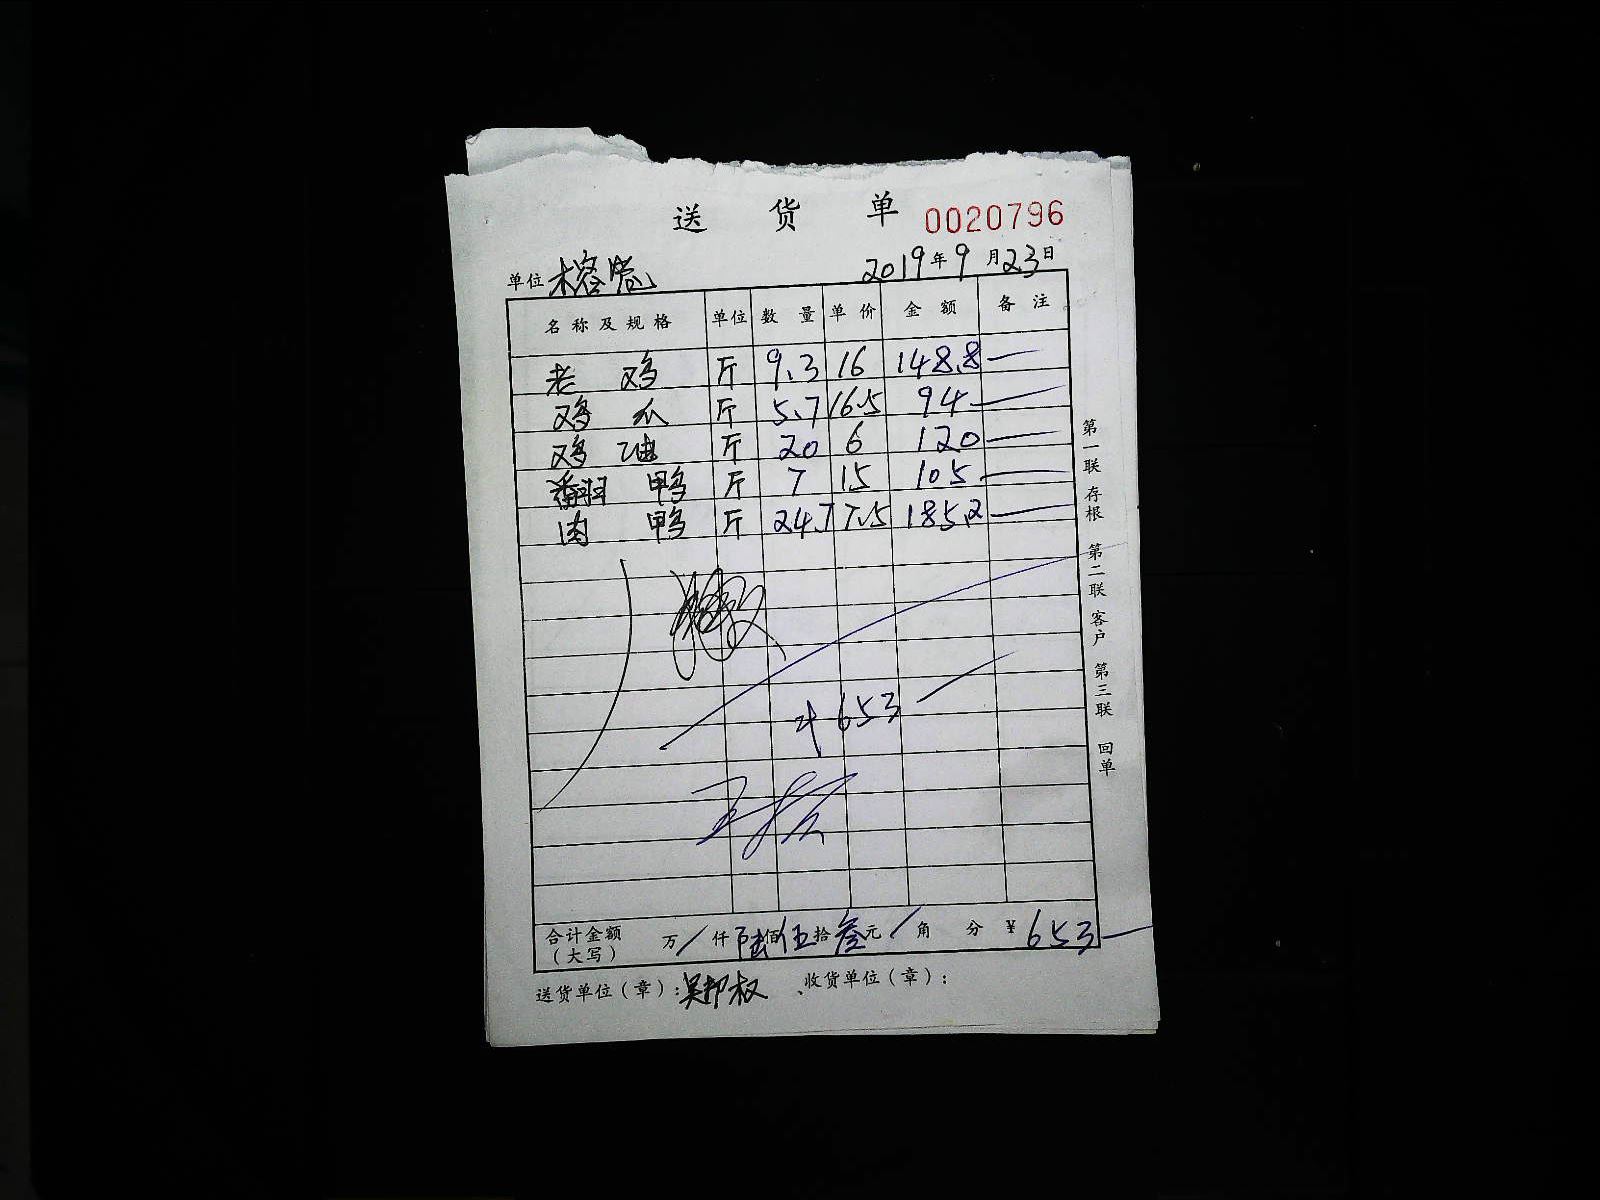 送 货 单 0020796
单位 榕苑 2019年9月23日
名称及规格 单位 数量 单价 金额 备注
老鸡 斤 9.3 16 148.8 —
鸡爪 斤 5.7 16.5 94 —
鸡油 斤 20 6 120 —
翻鸭 斤 7 15 105 —
肉鸭 斤 24.7 7.5 185.2 —
653 —
合计金额（大写） 万 / 仟 陆 佰 伍 拾 叁 元 / 角 分 ¥ 653 —
送货单位（章）：吴邦权 收货单位（章）：
第一联 存根 第二联 客户 第三联 回单